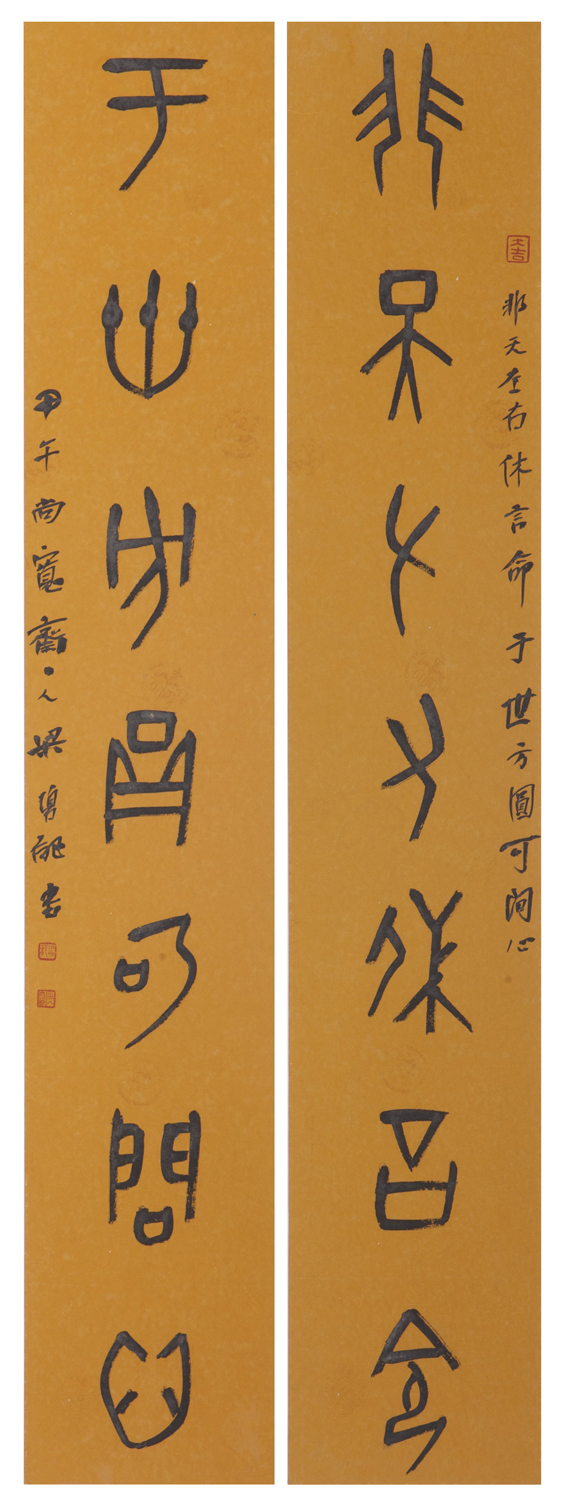 大吉
非天左右休言命于世方圓可问心
非天左右休言命
于世方圓可問心
甲午尚寬齋主人梁書